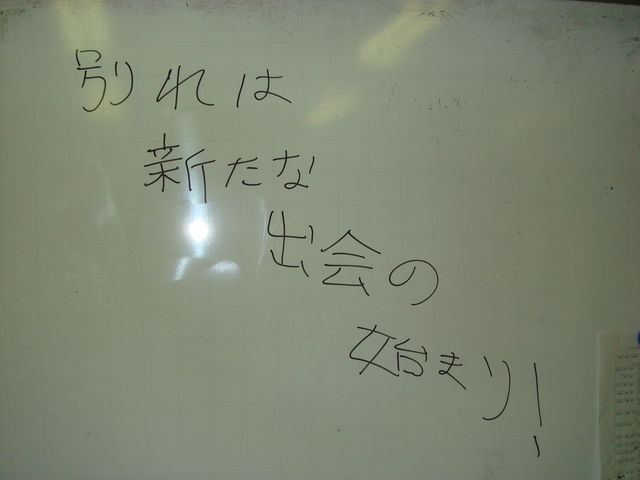 別れは
新たな
出会の
始まり!